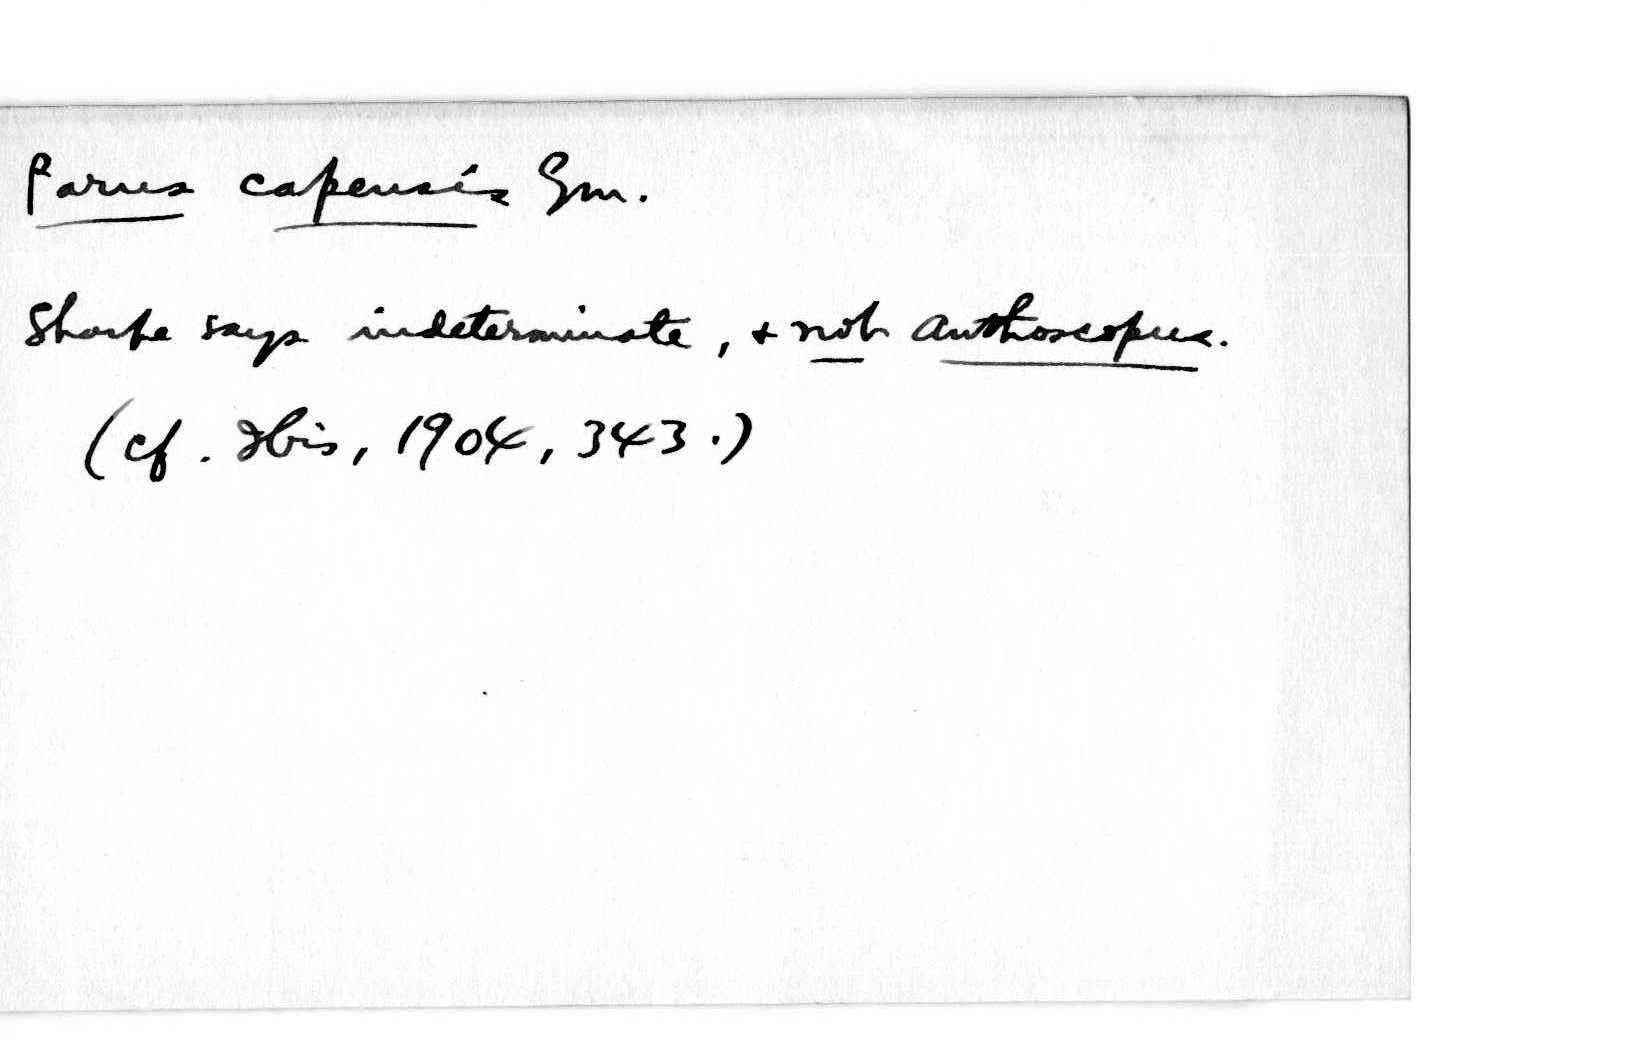 Parus capensis Gm.
Sharpe says indeterminate, + not Anthoscopus.
(cf. Ibis, 1904, 343.)